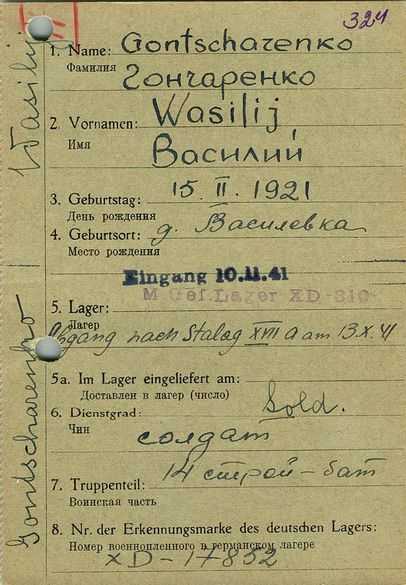 324
1. Name: Gontscharenko
Фамилия
Гончаренко
2. Vornamen: Wasilij
Имя
Василий
3. Geburtstag: 15. II. 1921
День рождения
4. Geburtsort: д. Василевка
Место рождения
Eingang 10.11.41
M Gef. Lager XD-310-
5. Lager:
Лагерь
Abgang nach Stalag XVII A am 13.X.41
5a. Im Lager eingeliefert am:
Доставлен в лагерь (число)
6. Dienstgrad: Sold.
Чин
солдат
14 строй-бат
7. Truppenteil:
Воинская часть
8. Nr. der Erkennungsmarke des deutschen Lagers:
Номер военнопленного в германском лагере
XD-17852
Wasilij
Gontscharenko